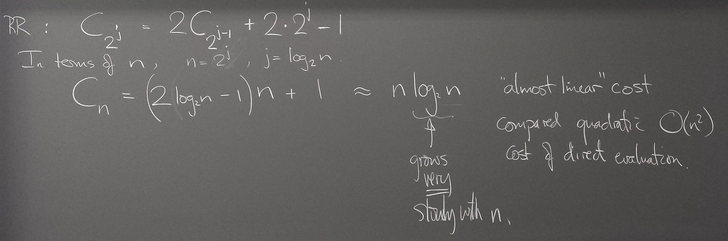 RR : C_{2^j} = 2C_{2^{j-1}} + 2·2^j - 1
In terms of n, n = 2^j, j = log₂n.
C_n = (2log₂n - 1)n + 1 ≈ n log₂n "almost linear" cost
compared quadratic O(n²)
cost of direct evaluation.
grows
very
slowly with n.